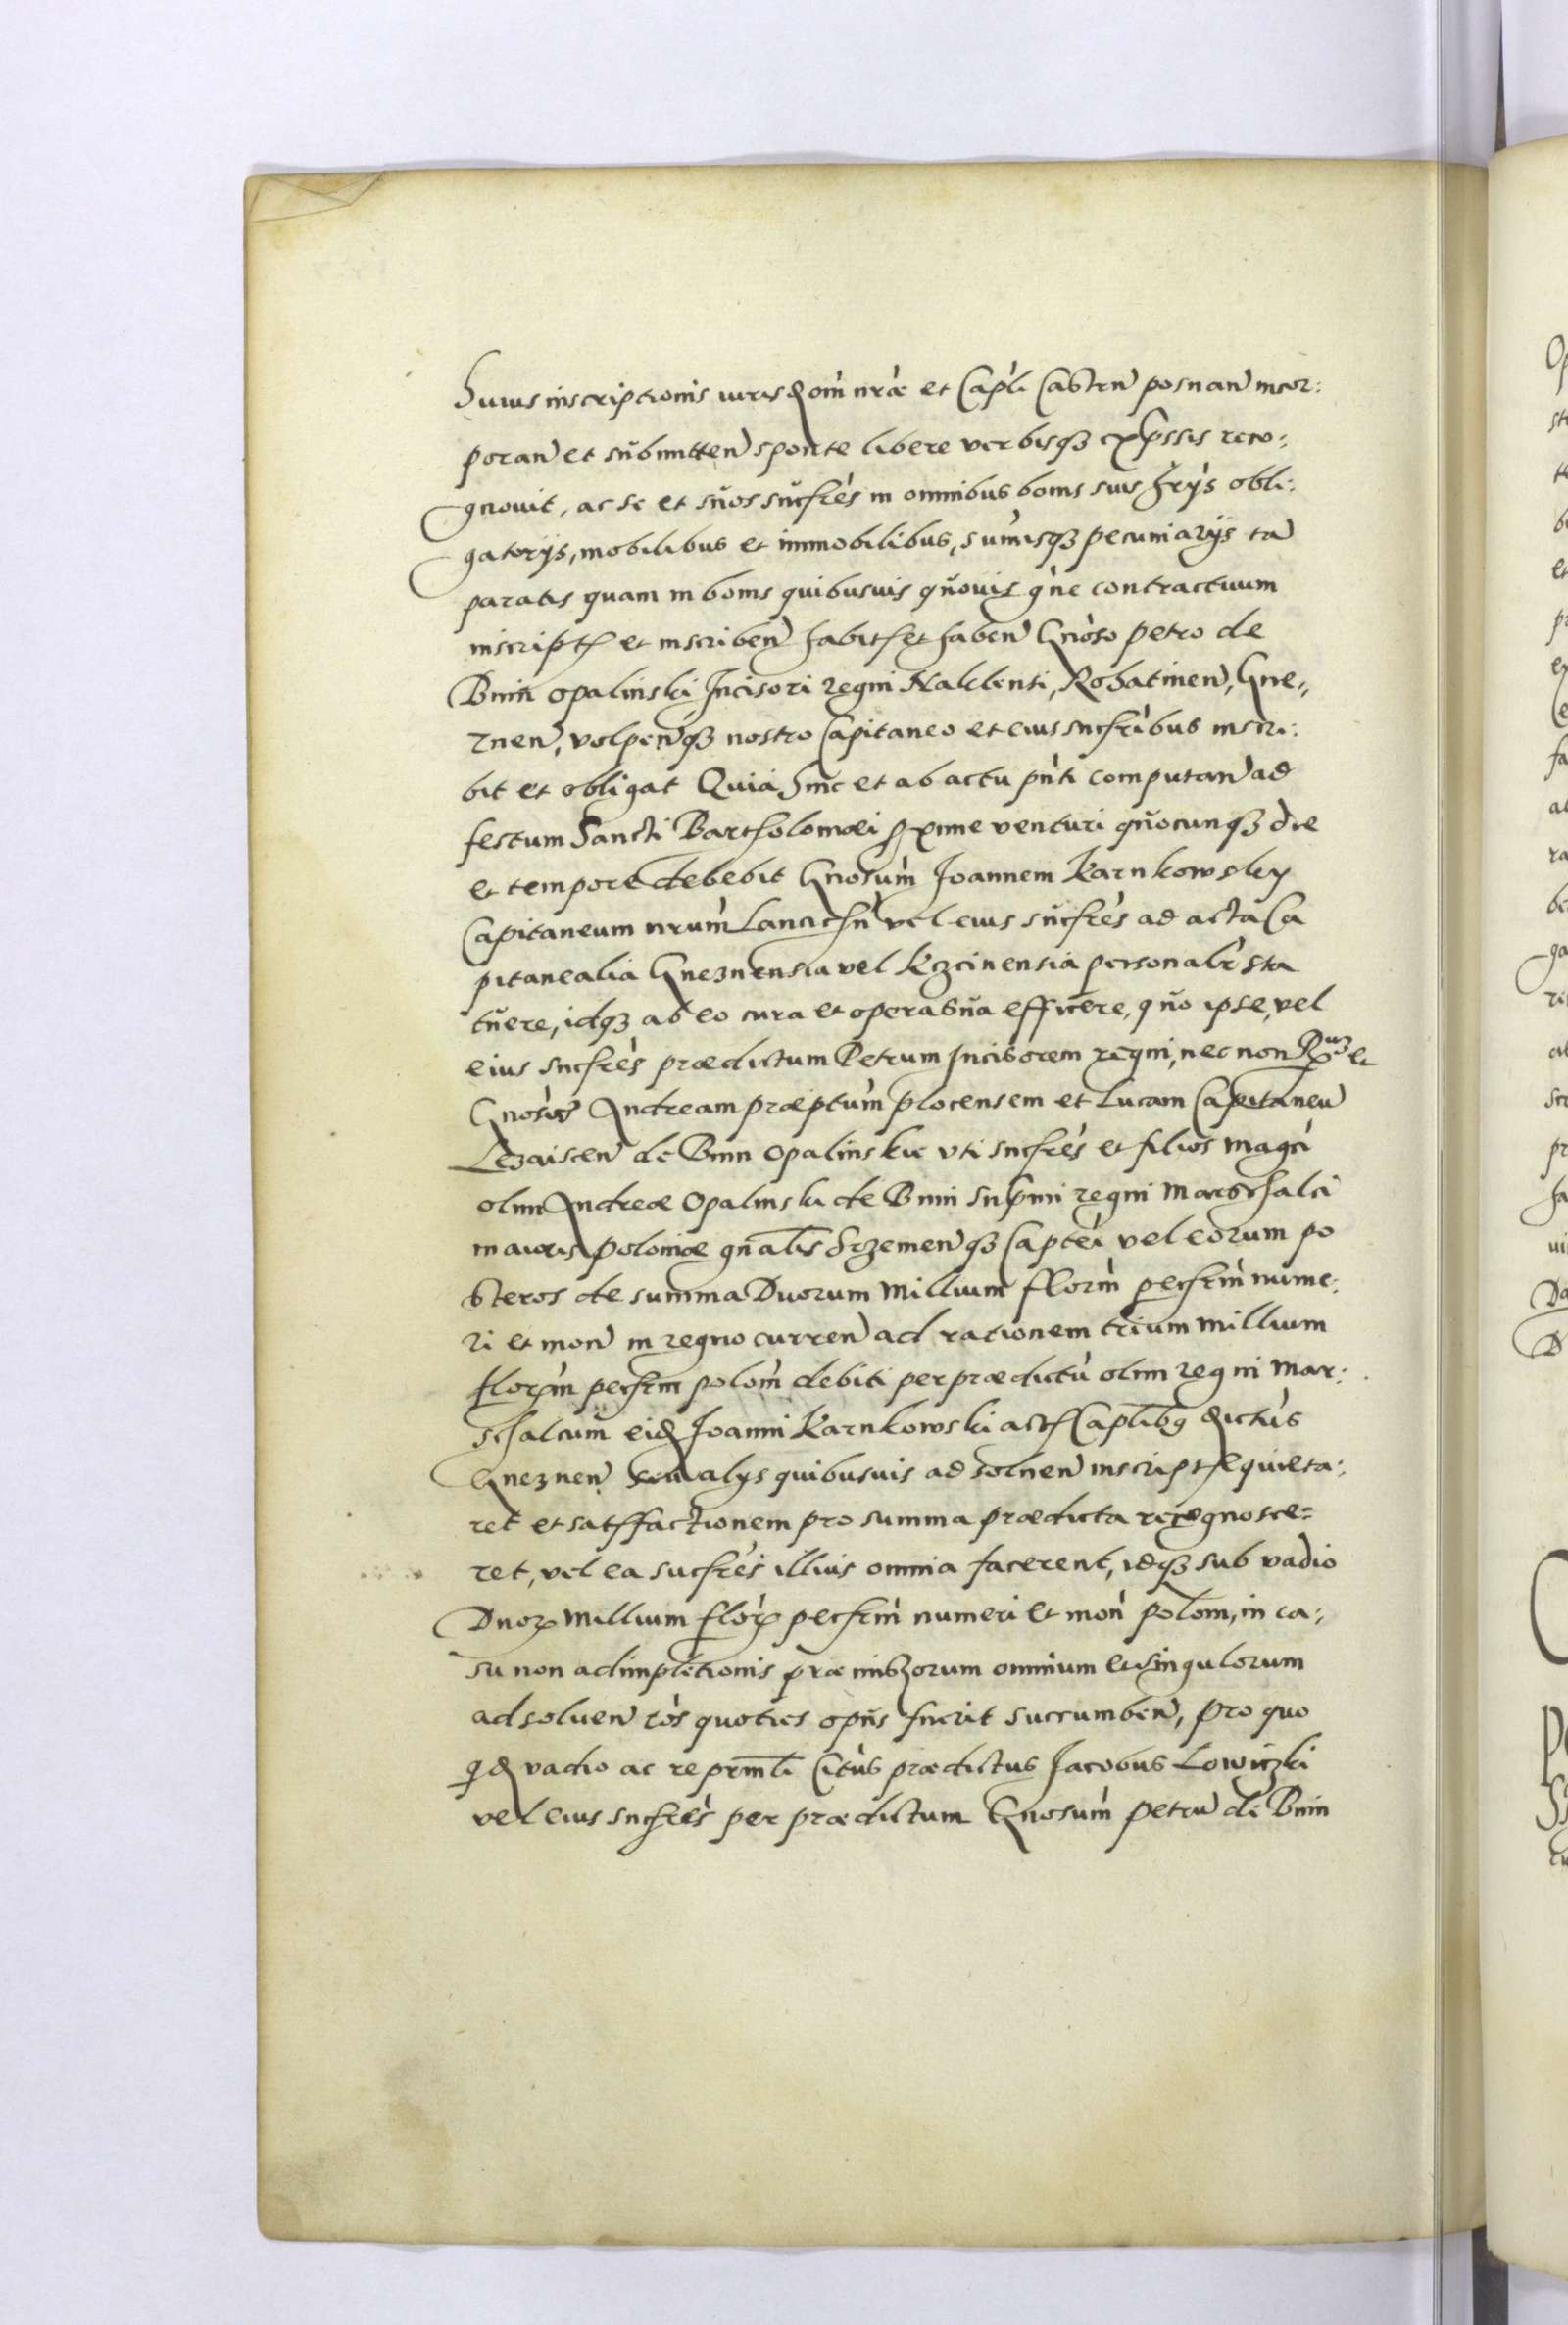 huius inscriptionis iurisdōni nræ et Capli Castren posnan incor:
poran et submitten sponte libere verbisq3 expssis reco:
gnovit, ac se et suos succres in omnibus bonis suis hrijs obli:
gatorijs, mobilibus et immobilibus, sumisq3 pecuniarijs ta
paratis quam in bonis quibusvis quovis gne contractuum
inscript et inscriben habit et haben Gnoso Petro de
Bnin Opalinski Incisori regni Naklensi, Rohatinen, Gne,,
znen, volpenq3 nostro Capitaneo et eius succribus inscri:
bit et obligat Quia hinc et ab actu pnti computan ad
festum Sancti Bartholomæi pxime venturi quocunq3 die
et tempore debebit Gnosum Joannem Karnkowsky
Capitaneum nrum Lancicñ vel eius succres ad acta Ca
pitanealia Gneznensia vel Kczinensia personalr sta
tuere, idq3 ab eo cura et opera sua efficere, quo ipse, vel
eius succres prædictum Petrum Incisorem regni, nec non et
Gnosos Andream præptum plocensem et Lucam Capitaneu
Lezaiscen de Bnin Opalinskie uti succres et filios magci
olim Andreæ Opalinski de Bnin supmi regni Marschalci
maioris Poloniæ gnalis Srzemenq3 Captei vel eorum po
steros de summa Duorum Millium florm pecrm nume:
ri et mon in regno curren ad rationem trium millium
florm pecrm polom debiti per prædictu olim regni Mar:
schalcum eid Joanni Karnkowski act Caplibq dictis
Gneznen seu alys quibusvis ad solven inscript quieta:
ret et satffactionem pro summa prædicta recognosce=
ret, vel ea succres illius omnia facerent, idq3 sub vadio
Duor Millium flor pecrm numeri et mon polom, in ca:
su non adimpletionis præmissorum omnium et singulorum
ad solven tos quoties opus fuerit succumben, pro quo
qd vadio ac re prmli Citus prædictus Jacobus Lowiczki
vel eius succres per prædictum Gnosum Petru de Bnin